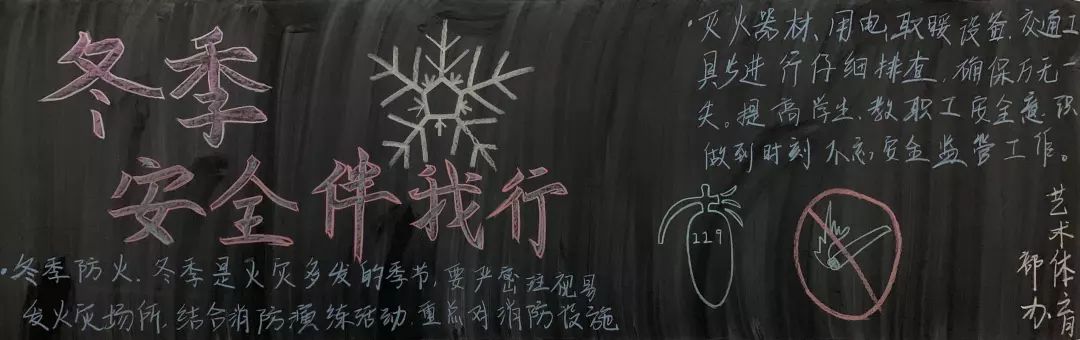 冬季
安全伴我行
·冬季防火.冬季是火灾多发的季节,要严密注视易
发火灾场所.结合消防演练活动.重点对消防设施
·灭火器材、用电、取暖设备、交通工
具等进行仔细排查,确保万无一
失。提高学生、教职工安全意识
做到时刻不忘安全监管工作。
119
艺术体育
部办